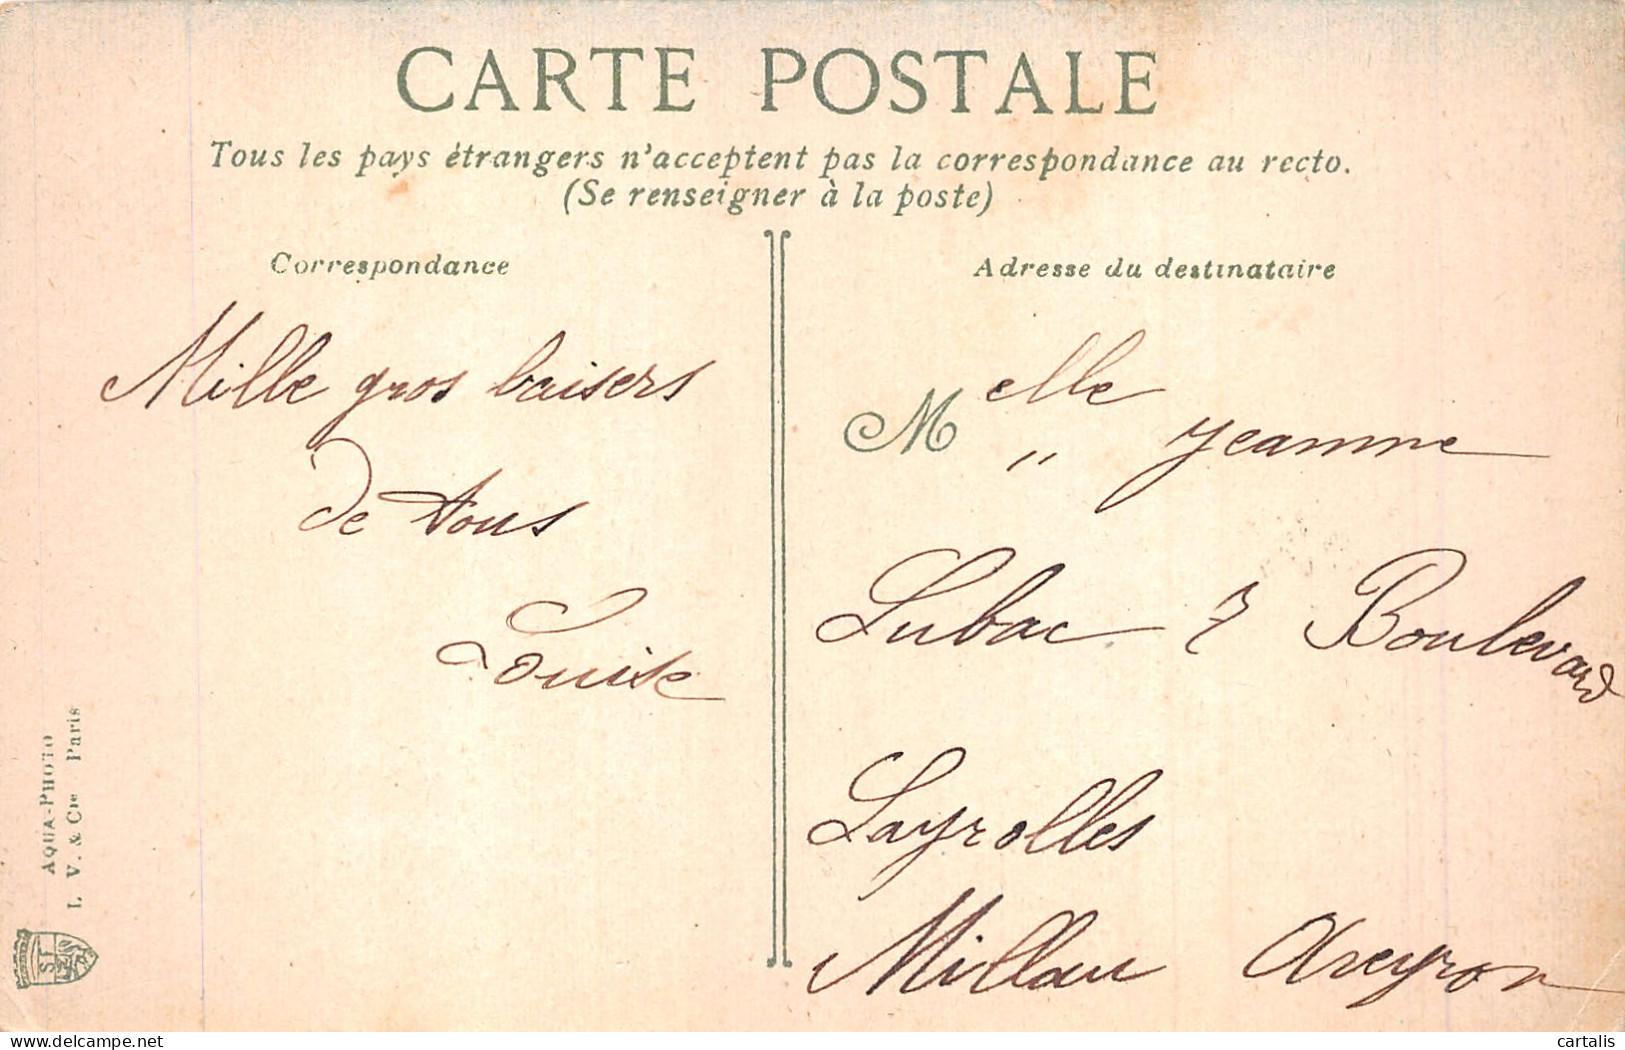 CARTE POSTALE
Tous les pays étrangers n'acceptent pas la correspondance au recto.
(Se renseigner à la poste)
Correspondance
Mille gros baisers
de tous
Louise
Adresse du destinataire
Melle Jeanne
Lubac 7 Boulevard
Sayrolles
Millau Aveyron
AQUA-PHOTO
L. V. & Cie Paris
delcampe.net
cartalis